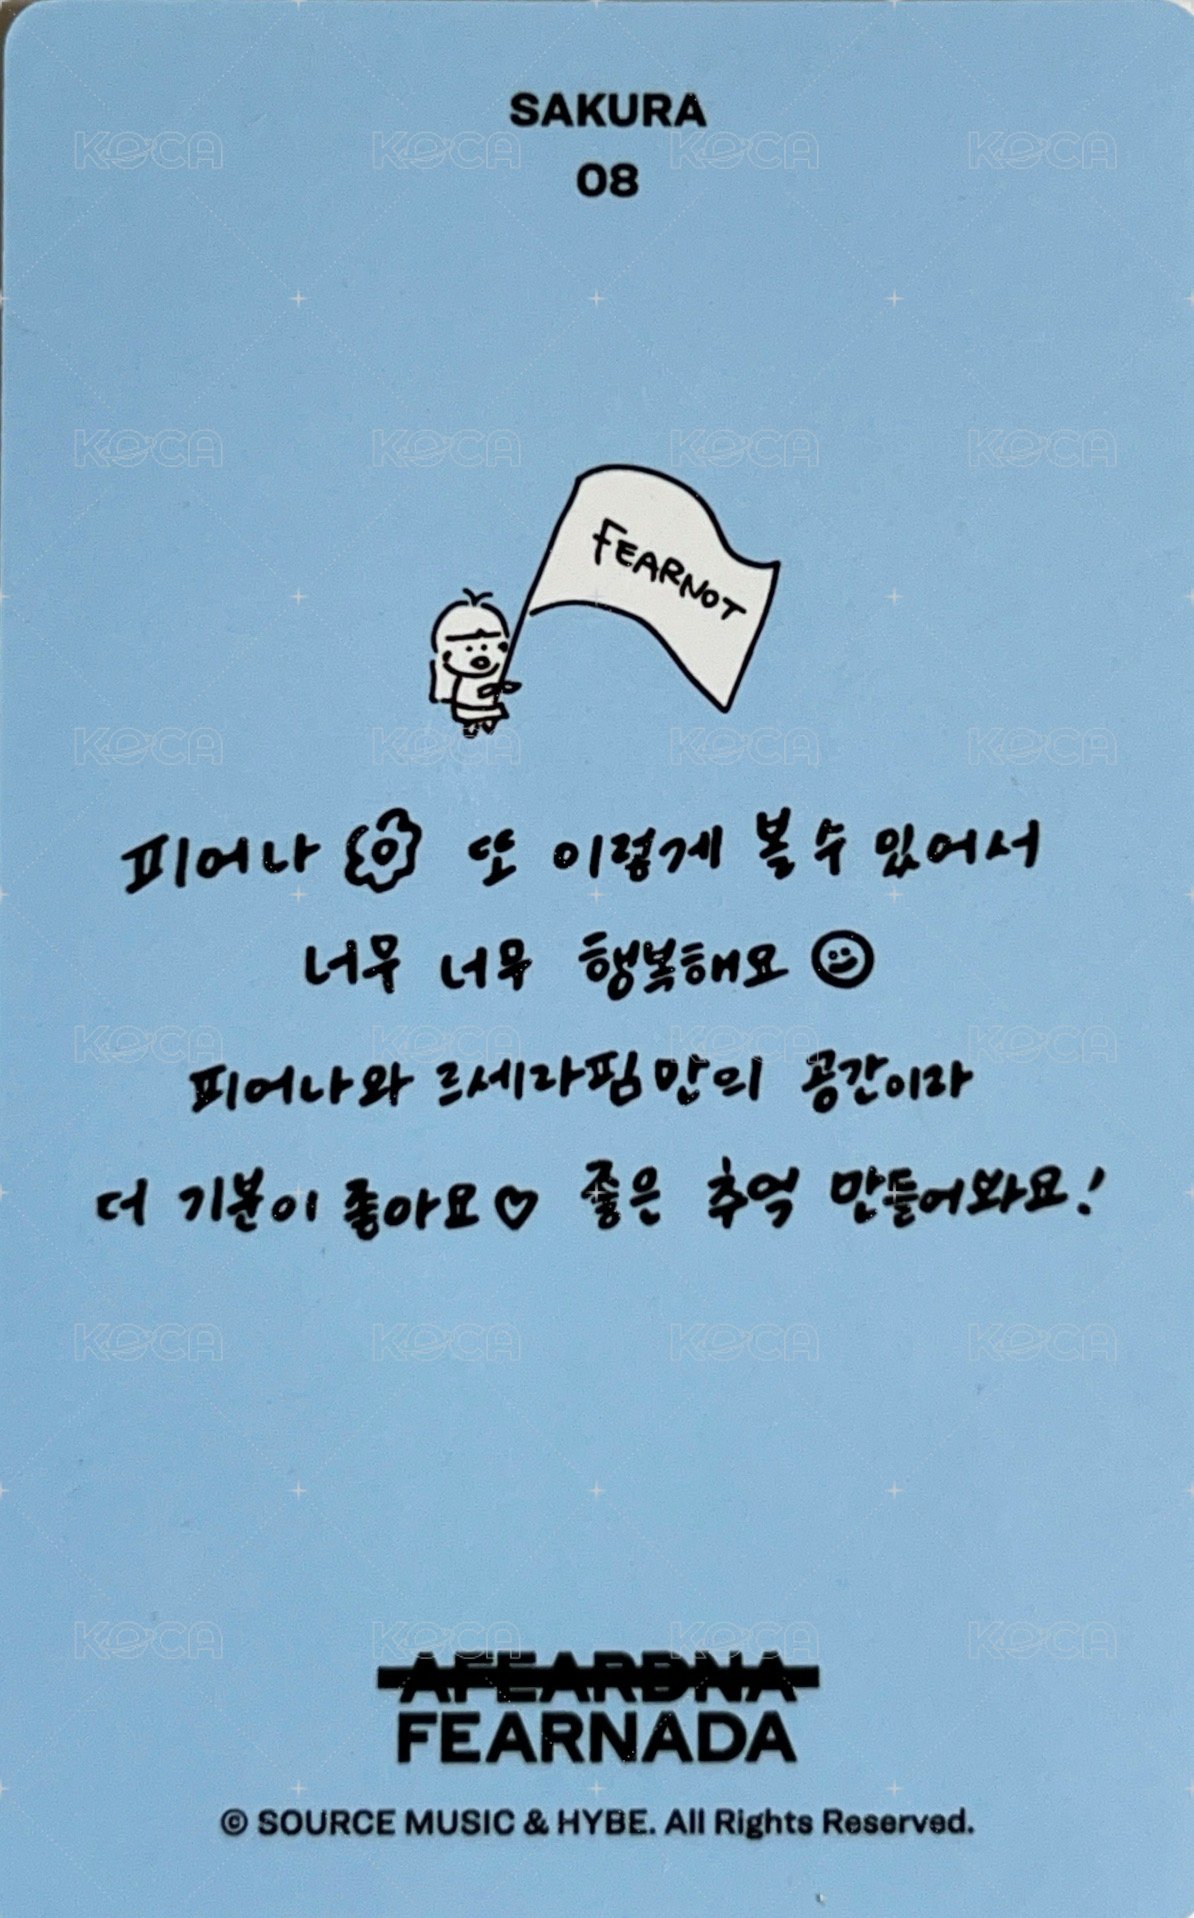 SAKURA
08
FEARNOT
피어나 또 이렇게 볼 수 있어서
너무 너무 행복해요
피어나와 르세라핌만의 공간이라
더 기분이 좋아요♡ 좋은 추억 만들어봐요!
AFEARDNA
FEARNADA
© SOURCE MUSIC & HYBE. All Rights Reserved.
KOCA